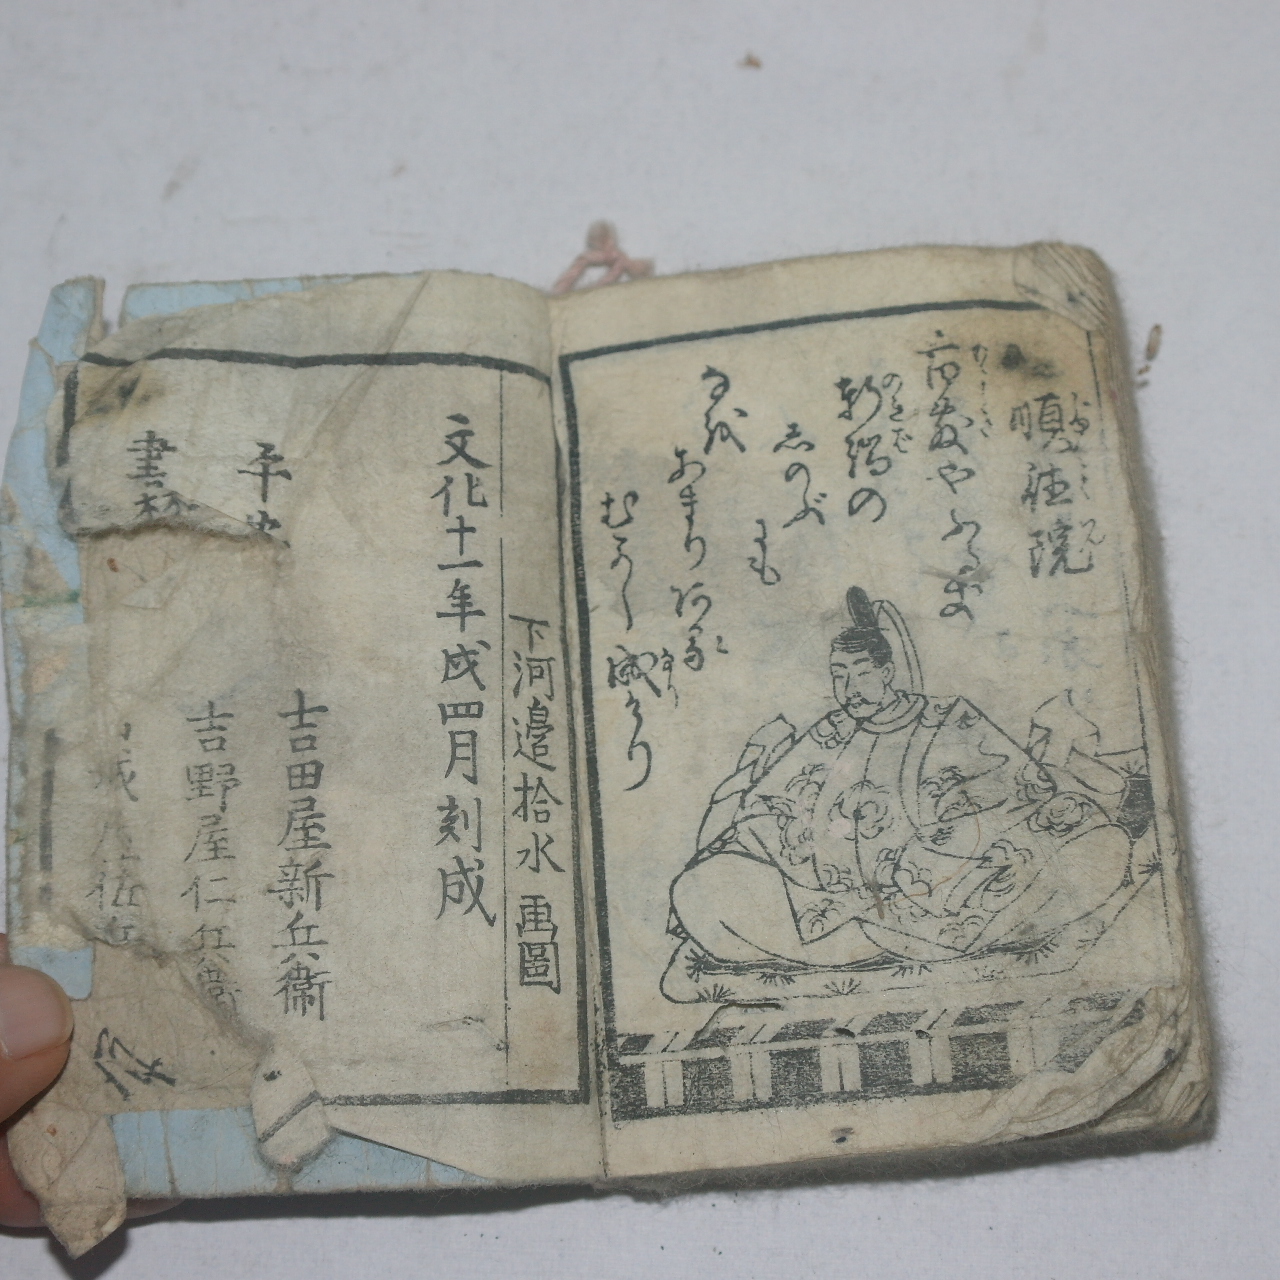 順徳院
百敷やふるき
軒端の
しのぶ
にも
なを
あまりある
むかし成けり
下河邉拾水画圖
文化十一年戌四月刻成
平安
書林
吉田屋新兵衛
吉野屋仁兵衛